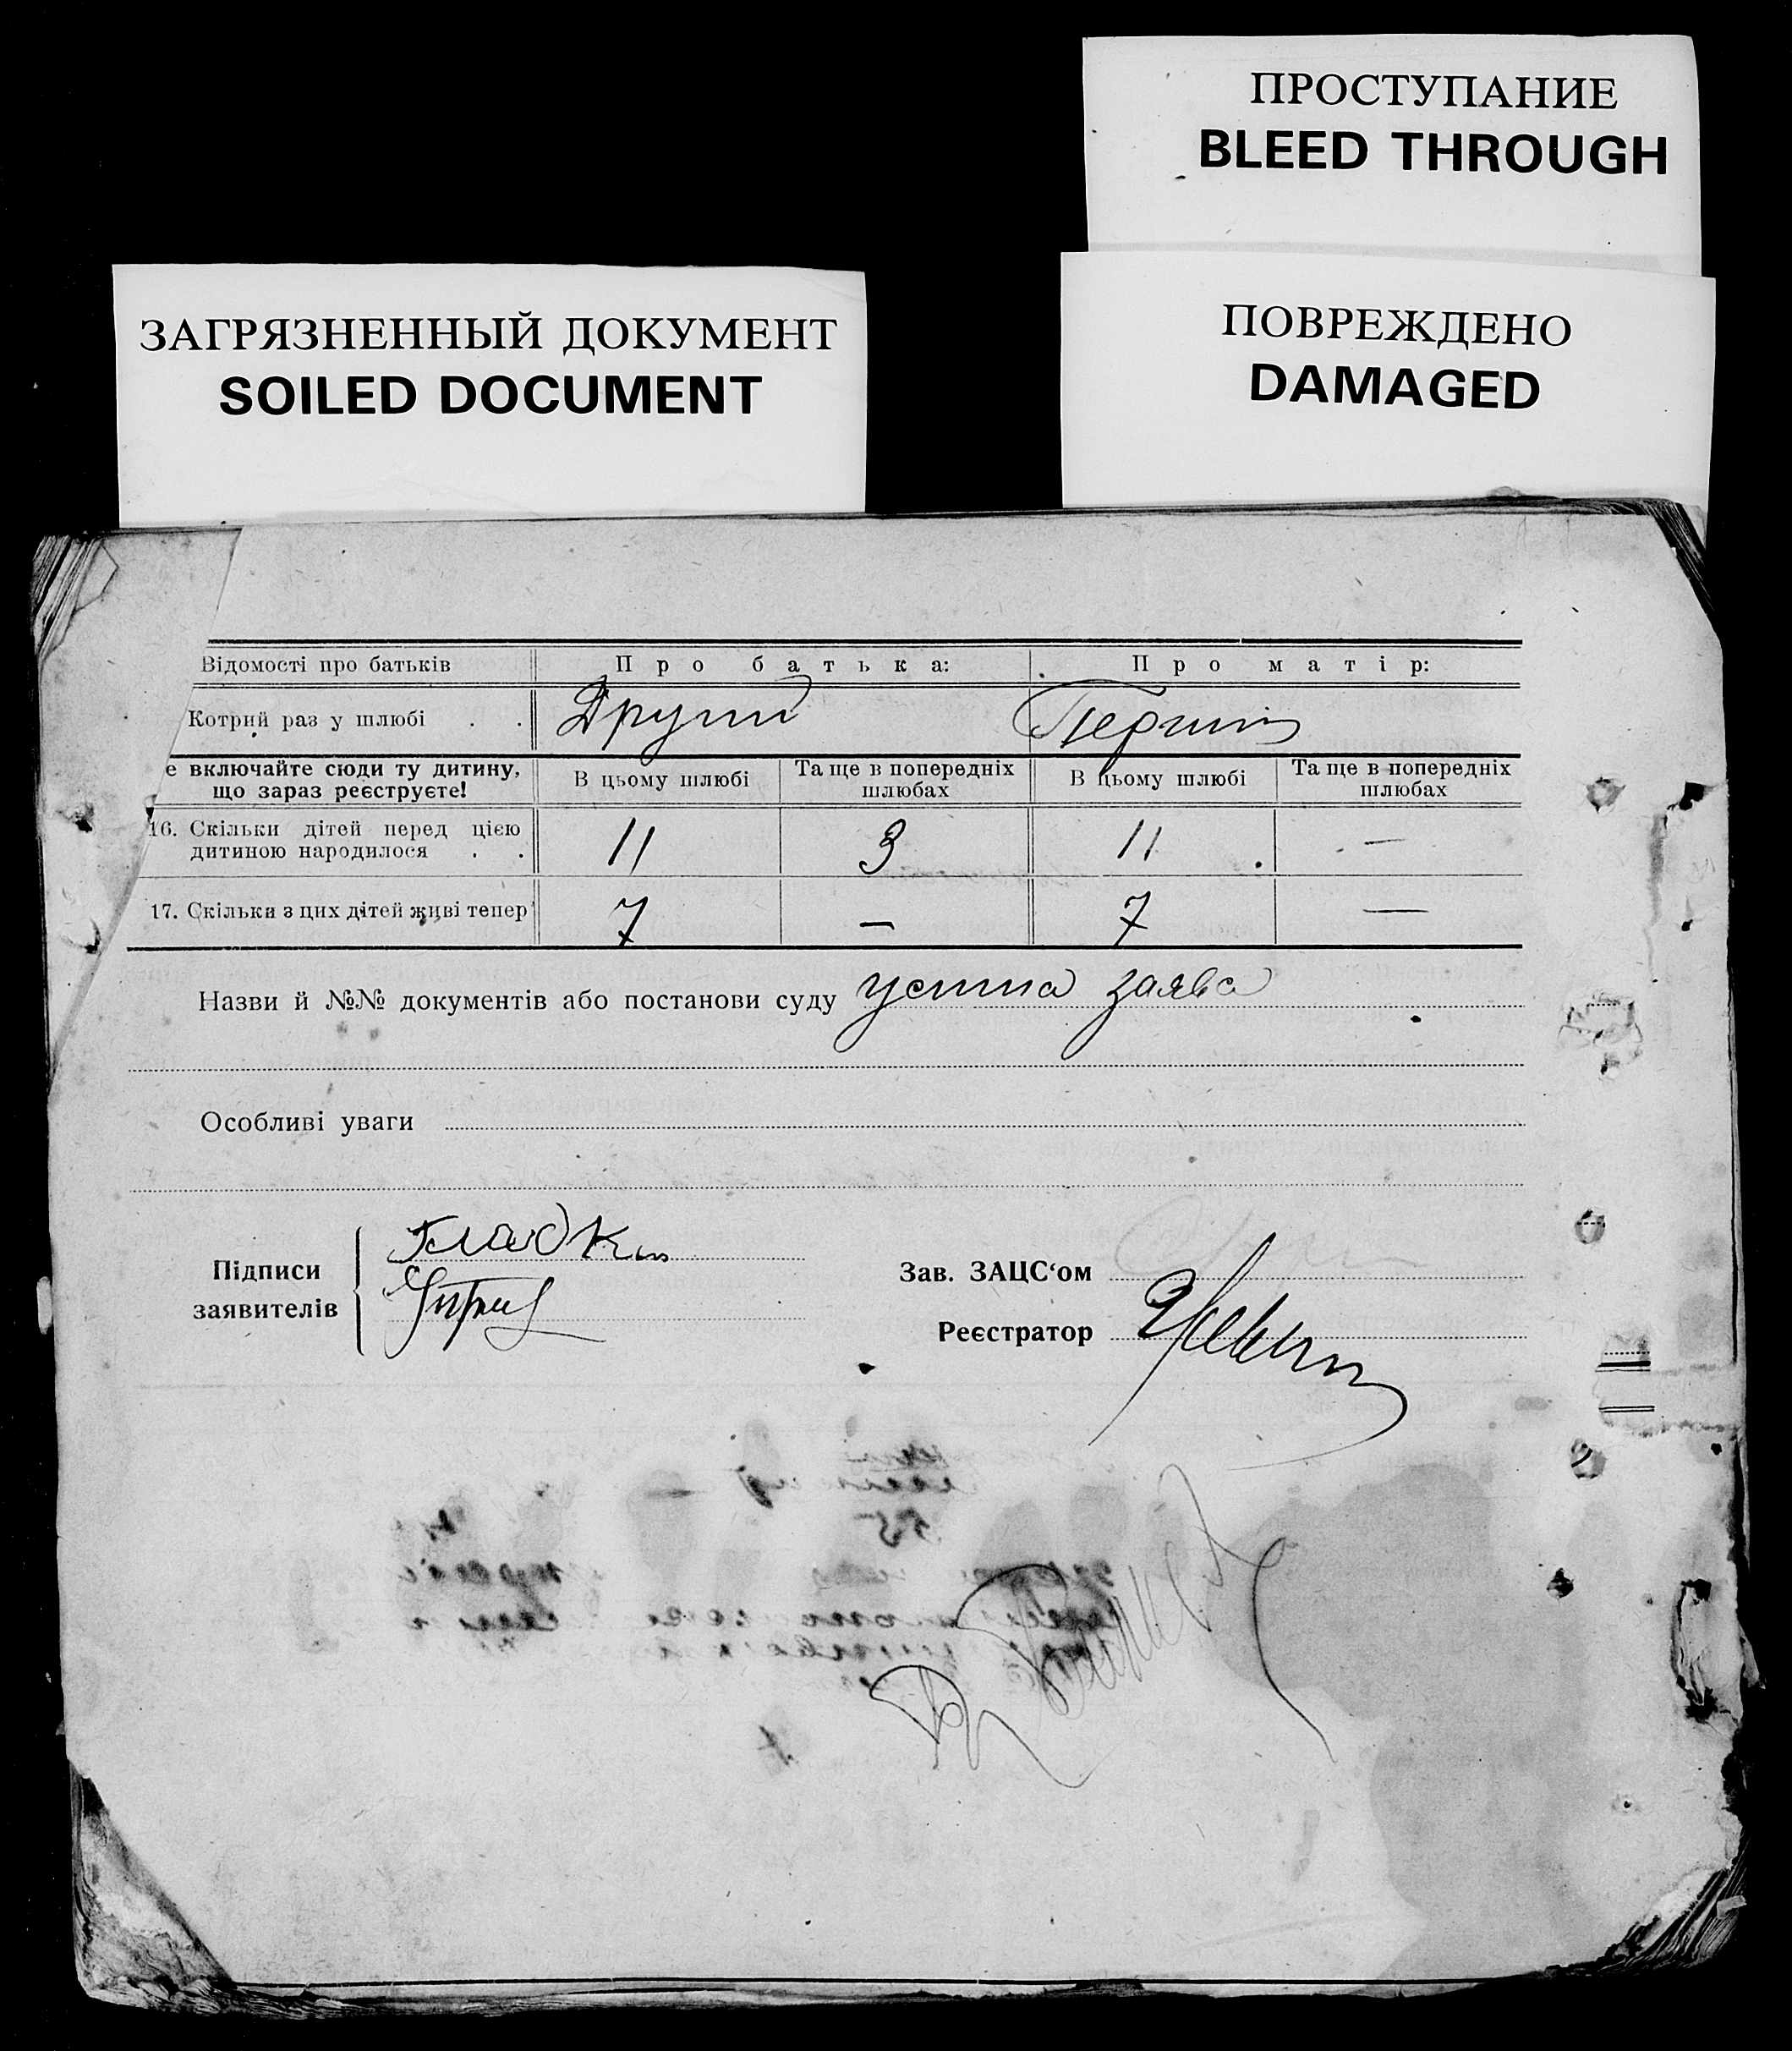 ПРОСТУПАНИЕ
BLEED THROUGH
ЗАГРЯЗНЕННЫЙ ДОКУМЕНТ
SOILED DOCUMENT
ПОВРЕЖДЕНО
DAMAGED
Відомості про батьків Про батька: Про матір:
Котрий раз у шлюбі . . Другий Перший
е включайте сюди ту дитину, що зараз реєструєте! В цьому шлюбі Та ще в попередніх шлюбах В цьому шлюбі Та ще в попередніх шлюбах
16. Скільки дітей перед цією
дитиною народилося . . 11 3 11 —
17. Скільки з цих дітей живі тепер 7 — 7 —
Назви й №№ документів або постанови суду устна заява
Особливі уваги
Підписи
заявителів
Зав. ЗАЦС‘ом
Реєстратор